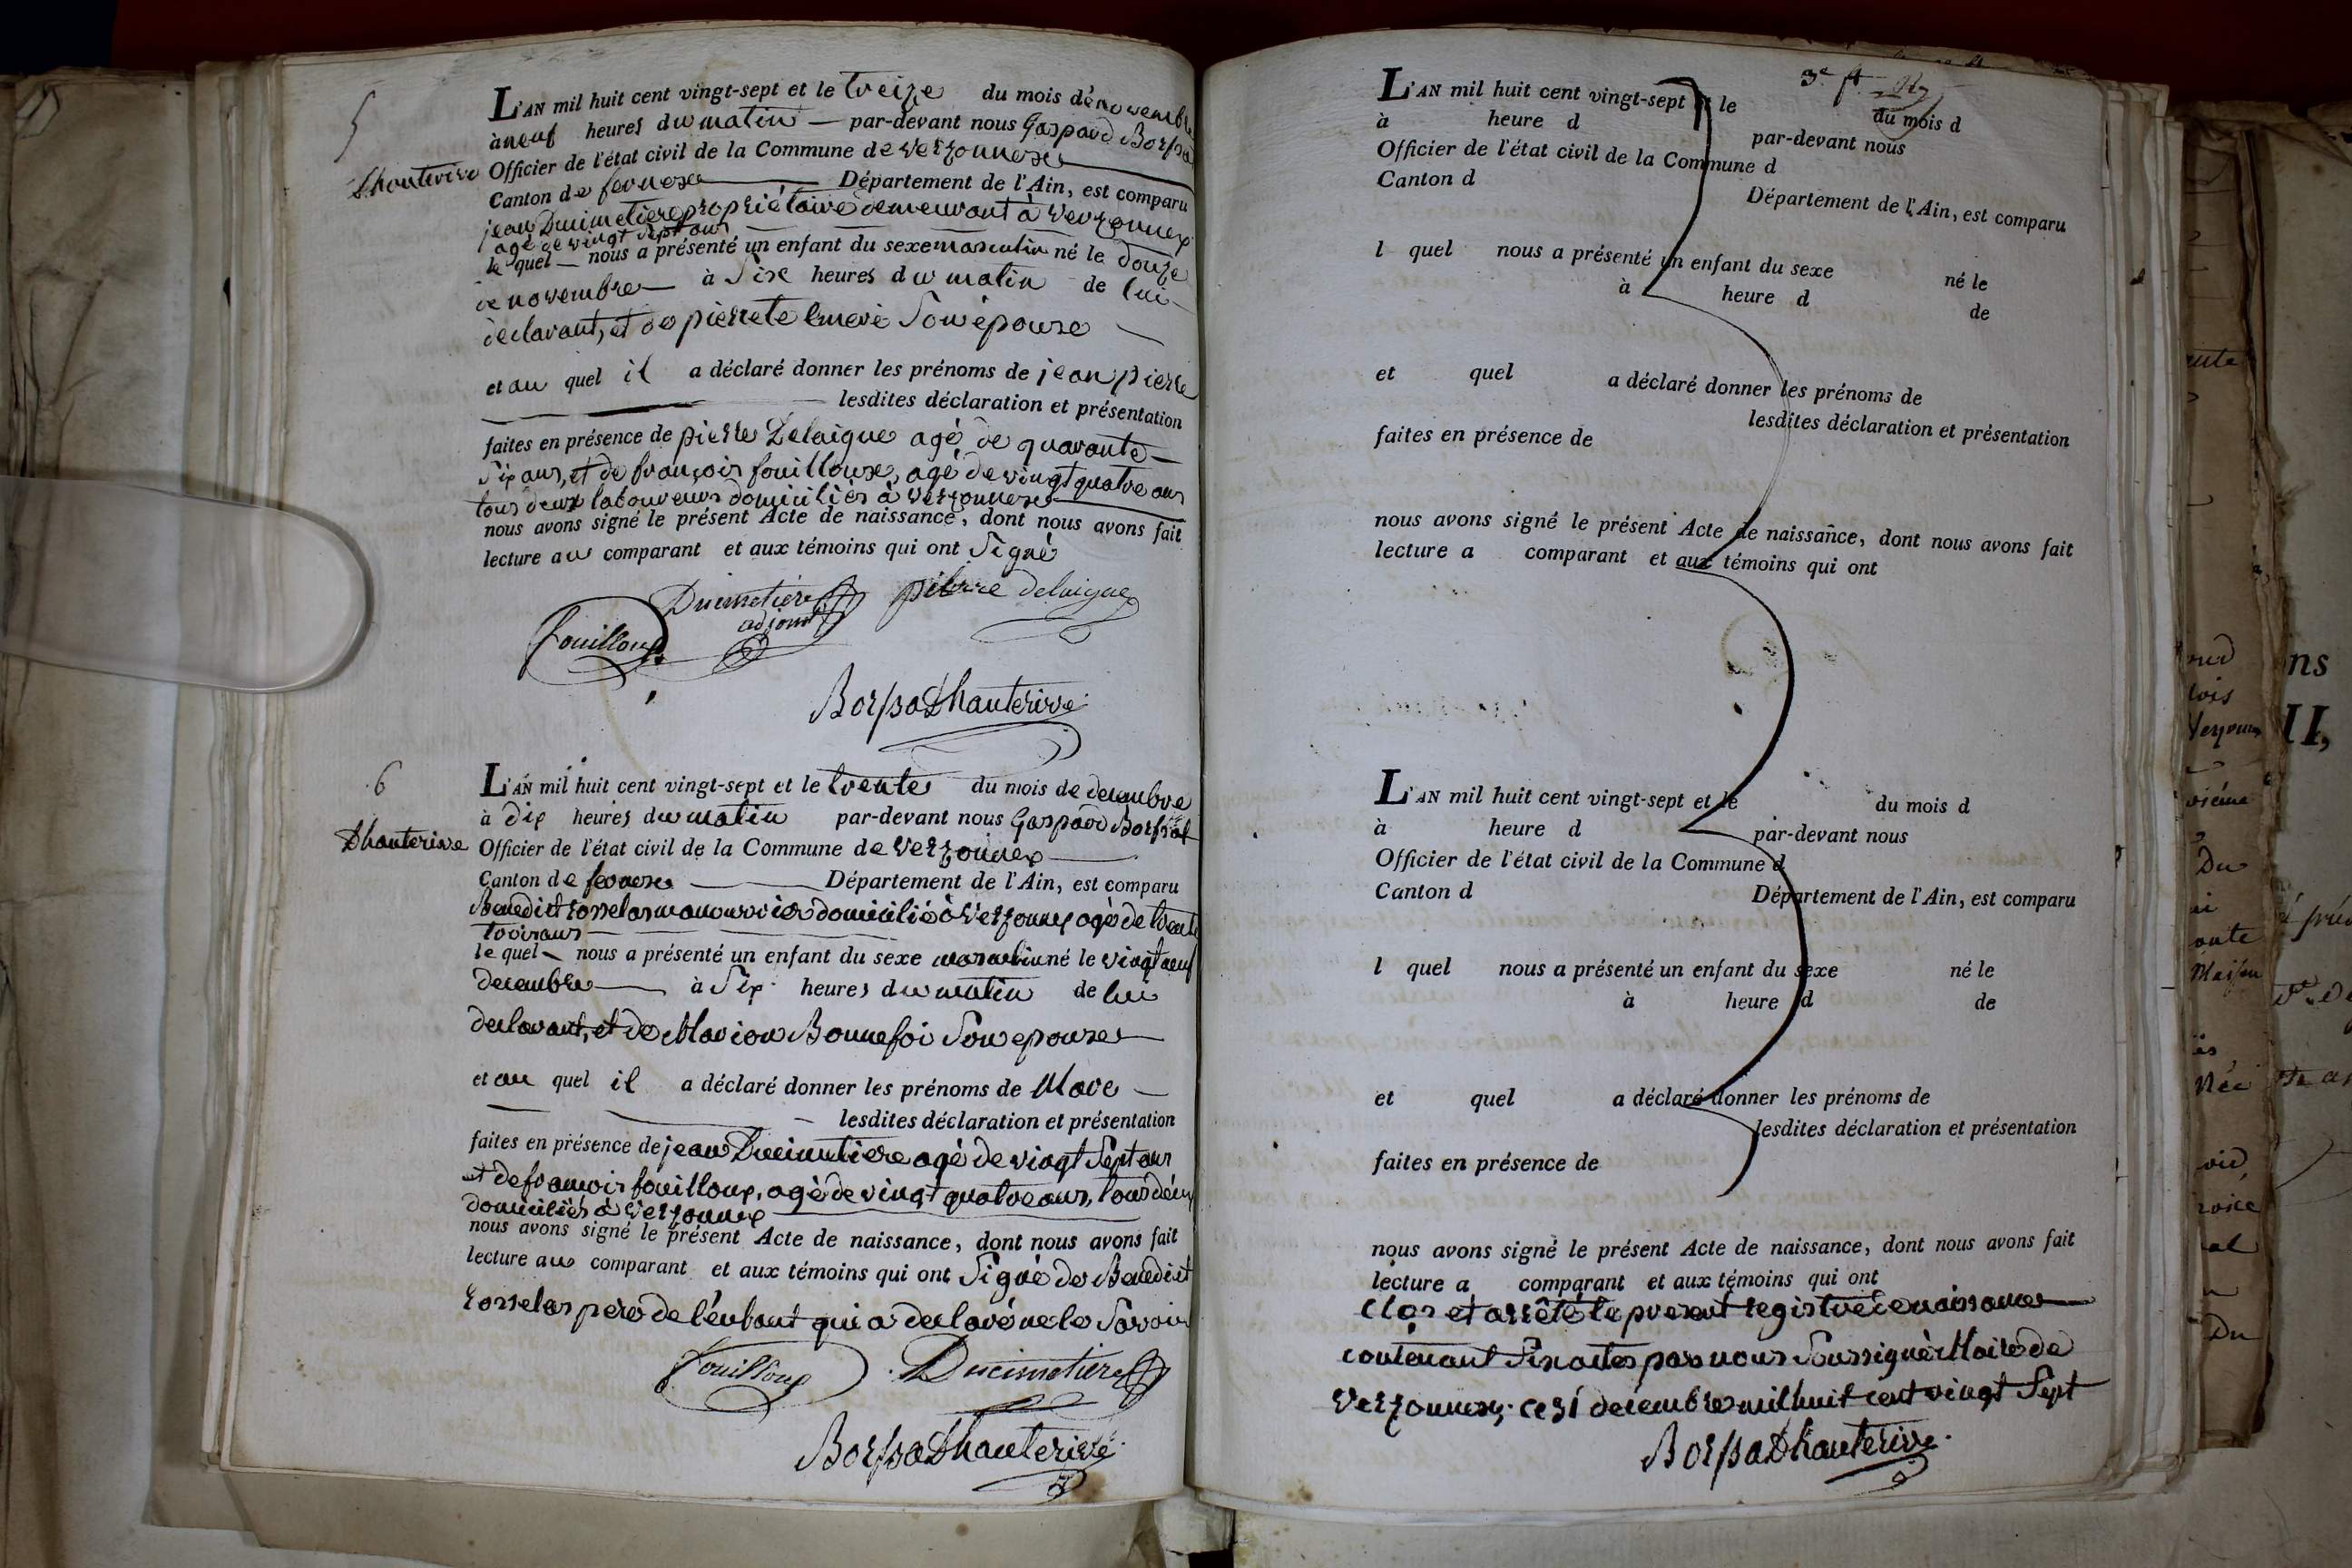 5
L'AN mil huit cent vingt-sept et le treize du mois de novembre
à neuf heures du matin — par-devant nous Gaspard Borssa
Dhauterive Officier de l'état civil de la Commune de Versonnex
Canton de fernex Département de l'Ain, est comparu
jean Ducimetiere propriétaire demeurant à Versonnex
agé de vingt sept ans
le quel — nous a présenté un enfant du sexe masculin né le douze
de novembre à Six heures du matin de lui
déclarant, et de pierrete Emeri Son épouse
et au quel il a déclaré donner les prénoms de jean pierre
lesdites déclaration et présentation
faites en présence de pierre Delaigue agé de quarante
Six ans, et de françois fouilloux, agé de vingt quatre ans
tous deux laboureurs domiciliés à Versonnex
nous avons signé le présent Acte de naissance, dont nous avons fait
lecture au comparant et aux témoins qui ont Signé
Ducimetiere pierre delaigue
adjoint
fouilloux
BorssaDhauterive
6
L'AN mil huit cent vingt-sept et le trente du mois de decembre
à dix heures du matin par-devant nous Gaspard Borssat
Dhauterive Officier de l'état civil de la Commune de Versonnex
Canton de fernex Département de l'Ain, est comparu
Benedict rosselas manouvrier domicilié à Versonnex agé de trente
trois ans
le quel — nous a présenté un enfant du sexe masculin né le vingt neuf
decembre à Six heures du matin de lui
declarant, et de Marion Bonnefoi Son epouse
et au quel il a déclaré donner les prénoms de Marc
lesdites déclaration et présentation
faites en présence de jean Ducimetiere agé de vingt Sept ans
et de francois fouilloux, agé de vingt quatre ans, tous deux
domiciliés à Versonnex
nous avons signé le présent Acte de naissance, dont nous avons fait
lecture au comparant et aux témoins qui ont Signé de Benedict
rosselas pere de l'enfant qui a declaré ne le Savoir
fouilloux Ducimetiere
BorssaDhauterive
3e ft
L'AN mil huit cent vingt-sept et le du mois d
à heure d par-devant nous
Officier de l'état civil de la Commune d
Canton d Département de l'Ain, est comparu
l quel nous a présenté un enfant du sexe né le
à heure d de
et quel a déclaré donner les prénoms de
lesdites déclaration et présentation
faites en présence de
nous avons signé le présent Acte de naissance, dont nous avons fait
lecture a comparant et aux témoins qui ont
L'AN mil huit cent vingt-sept et le du mois d
à heure d par-devant nous
Officier de l'état civil de la Commune d
Canton d Département de l'Ain, est comparu
l quel nous a présenté un enfant du sexe né le
à heure d de
et quel a déclaré donner les prénoms de
lesdites déclaration et présentation
faites en présence de
nous avons signé le présent Acte de naissance, dont nous avons fait
lecture a comparant et aux témoins qui ont
Clos et arrêté le present registre de naissances
contenant Six actes par nous Soussigné Maire de
Versonnex, ce 31 decembre mil huit cent vingt Sept
BorssaDhauterive